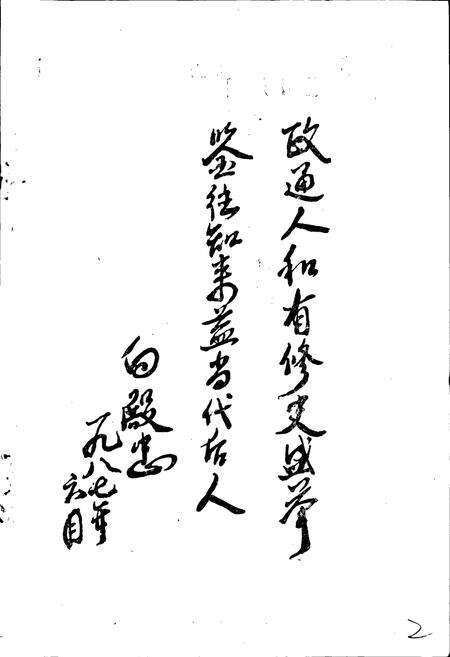 政通人和有修史盛举
鉴往知来益当代后人
白殿忠
一九八七年
六月
2